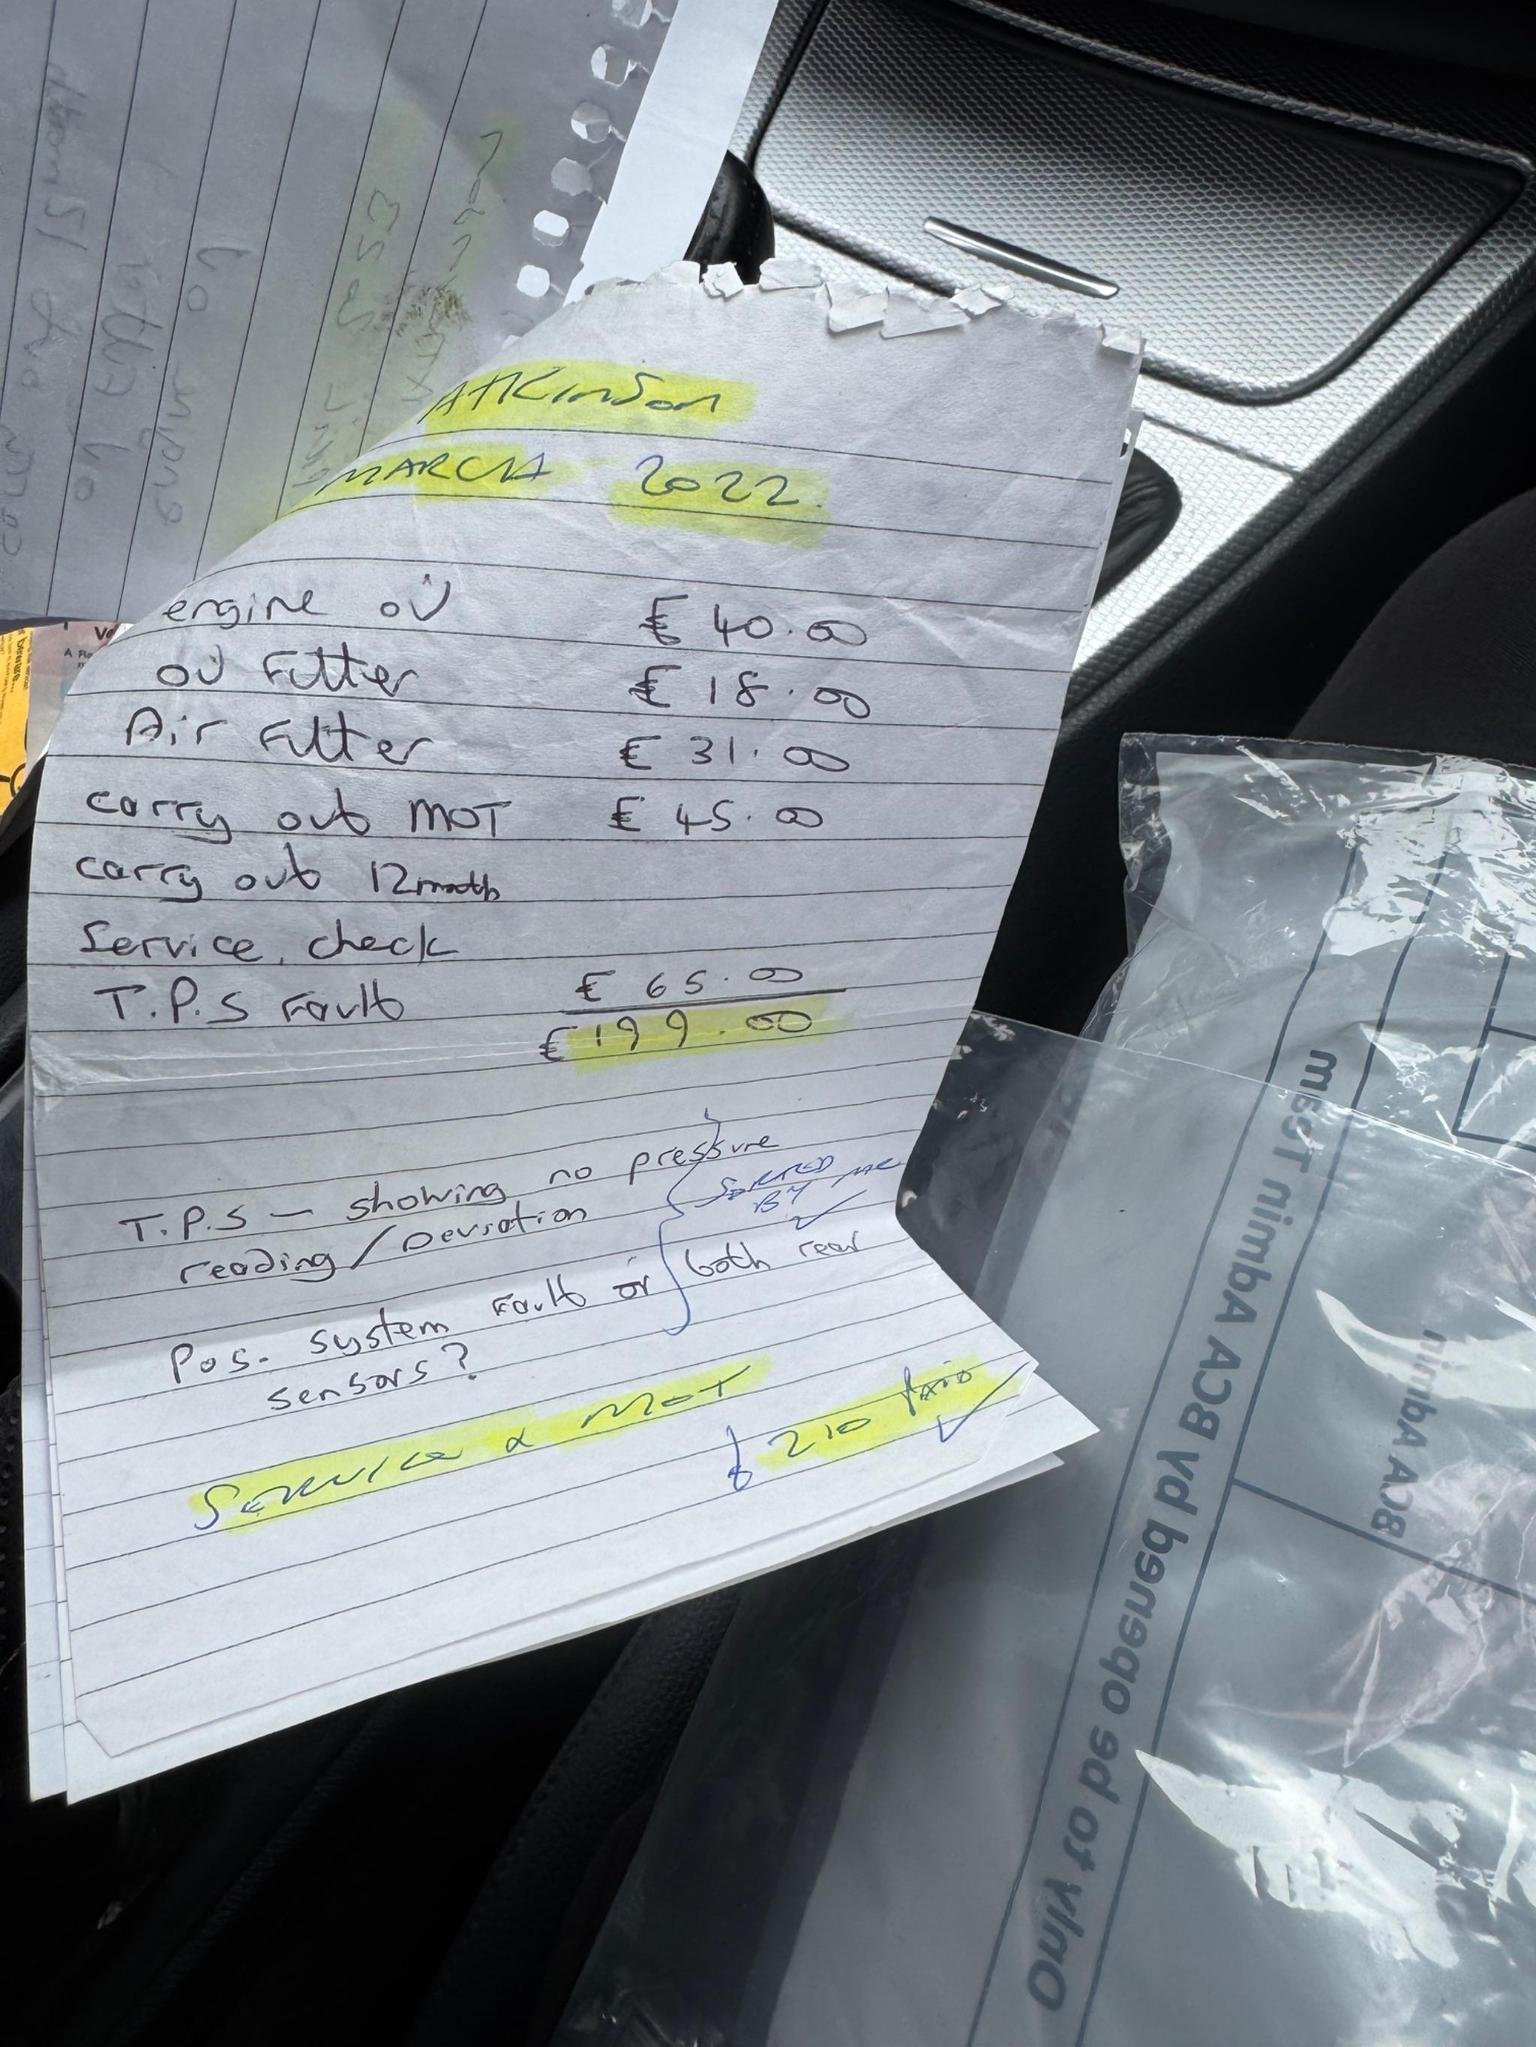 Atkinson
MARCH 2022
engine oil £ 40.00
oil Filter £ 18.00
Air Filter £ 31.00
carry out MOT £ 45.00
carry out 12month
Service, check £ 65.00
T.P.S Fault £ 199.00
T.P.S - showing no pressure
reading / Deviation
SORTED
BY ME
Pos. system Fault or both rear
sensors?
Service & MOT
£ 210 Paid
Only to be opened by BCA Admin Team
BCA Admin